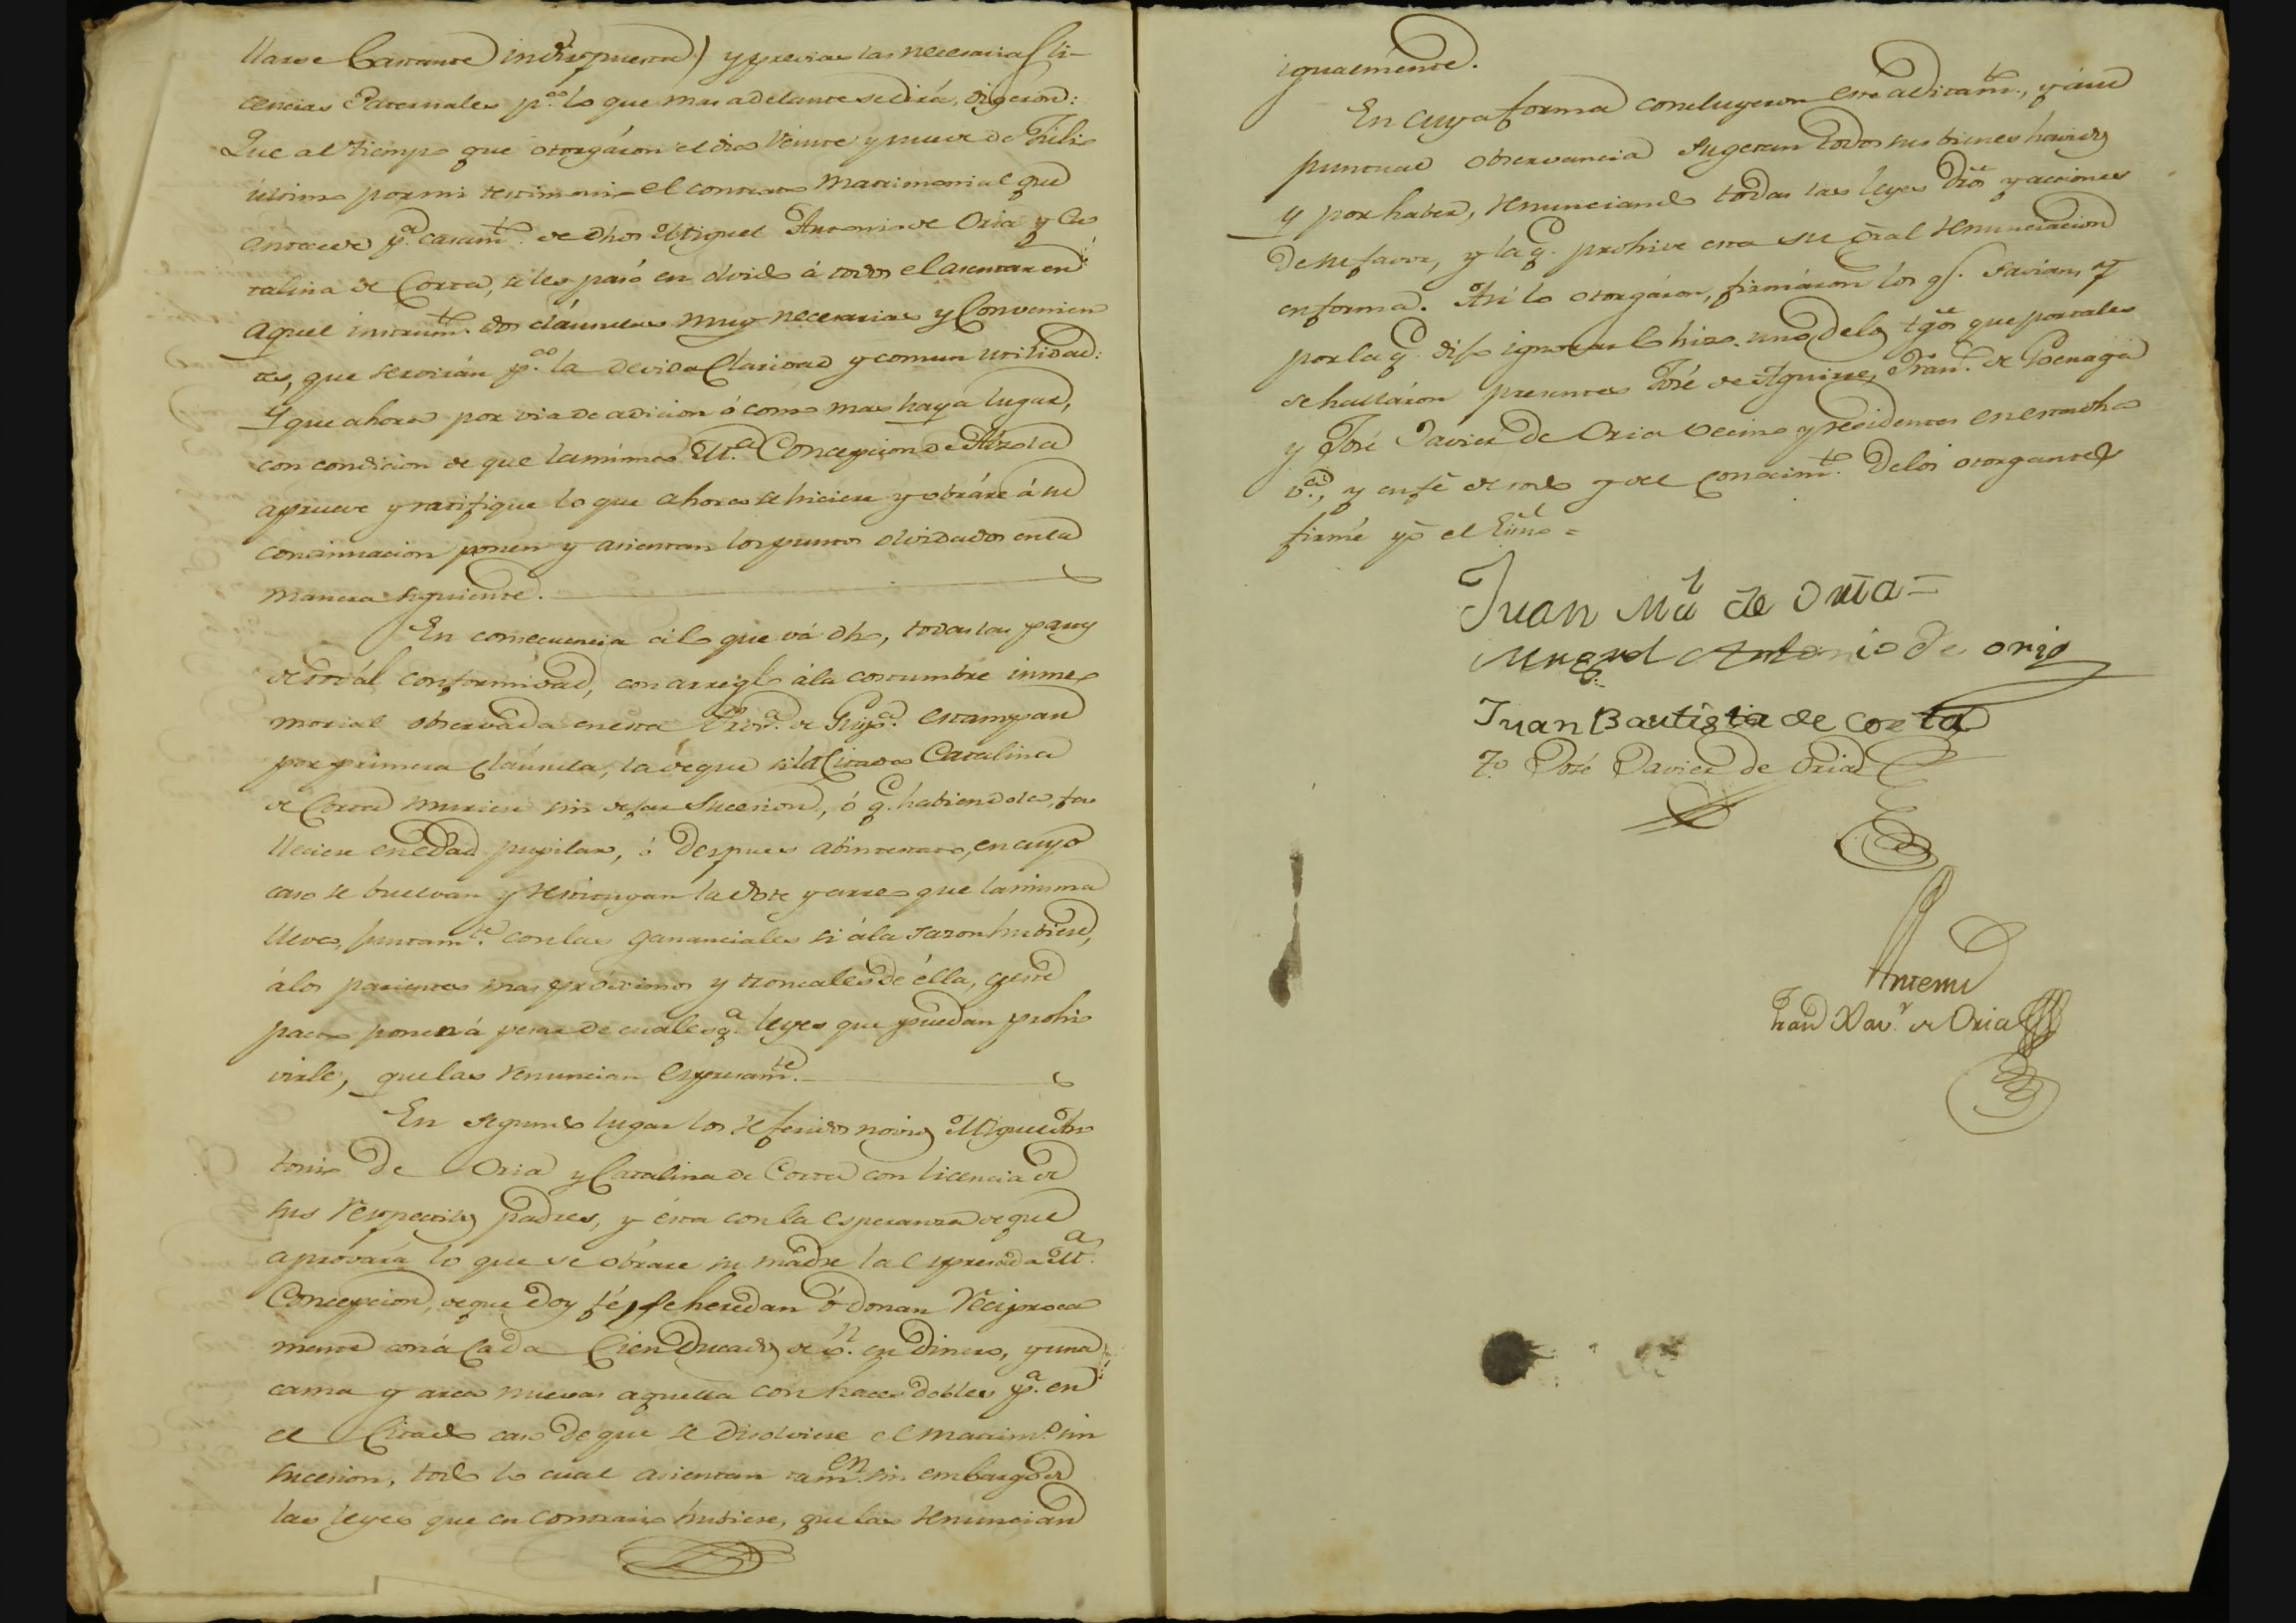 llarse bastante indispuesta) y previas las necesarias li-
cencias Paternales p.ª lo que mas adelante se dirá, digeron:
Que al tiempo que otorgáron el dia veinte y nueve de Julio
último por mi testimonio el contrato matrimonial que
antecede p.ª casam.to de dhos Miguel Antonio de Oria y Ca
talina de Corta, se les pasó en olvido á todos el asentar en
aquel instrum.to dos cláusulas muy necesarias y convenien
tes, que servirán p.ª la devida claridad y comun utilidad:
Y que ahora por via de adicion ó como mas haya lugar,
con condicion de que la misma M.ª Concepcion de
aprueve y ratifique lo que ahora se hiciere y obráre á su
continuacion ponen y asientan los puntos olvidados en la
manera siguiente.
En consecuencia á lo que vá dho, todas las partes
de total conformidad, con arreglo á la costumbre inme
morial observada en esta Prov.ª de Guip.ª estampan
por primera cláusula, la de que si la citada Catalina
de Corta muriese sin dejar sucesion, ó q.e habiendola, fa
lleciere en edad pupilar, ó despues abintestato, en cuyo
caso se buelvan y restituyan la dote y arreo que la misma
lleva, juntam.te con los gananciales si á la sazon hubiere,
á los parientes mas próximos y troncales de élla, y este
pacto ponen á pesar de cualesq.ª leyes que puedan prohi
virle, que las renuncian espresam.te
En segundo lugar los referidos novios Miguel An
tonio de Oria y Catalina de Corta con licencia de
sus respectivos padres, y ésta con la esperanza de que
aprovará lo que se obráre su madre la espresada M.ª
Concepcion, de que doy fé, se heredan ó donan reciproca
mente con á cada cien ducados de v.n en dinero, y una
cama y arca nuevas aquella con haces dobles p.ª en
el citado caso de que se disolviere el matrim.o sin
sucesion, todo lo cual asientan tamb.en sin embargo de
las leyes que en contrario hubiere, que las renuncian
igualmente.
En cuya forma concluyeron este aditam.to, y á su
puntual observancia sugetan todos sus bienes havidos
y por haber, renunciando todas las leyes dros y acciones
de su favor, y la q.e prohive esta su gral renunciacion
en forma. Así lo otorgáron, firmáron los q.e savian, y
por la q.e dijo ignorar lo hizo uno de los tgos que por tales
se halláron presentes José de Aguirre, Fran.co de Goenaga
y José Javier de Oria vecino y residentes en esta dha
v.ª, y en fé de todo y del conocim.to de los otorgantes
firmé yo el Esno =
Juan M.l de Oria =
Miguel Antonio de oria
Juan Bautista de corta
T.o José Javier de Oria
Antemi
Fran.co Xav.r de Oria